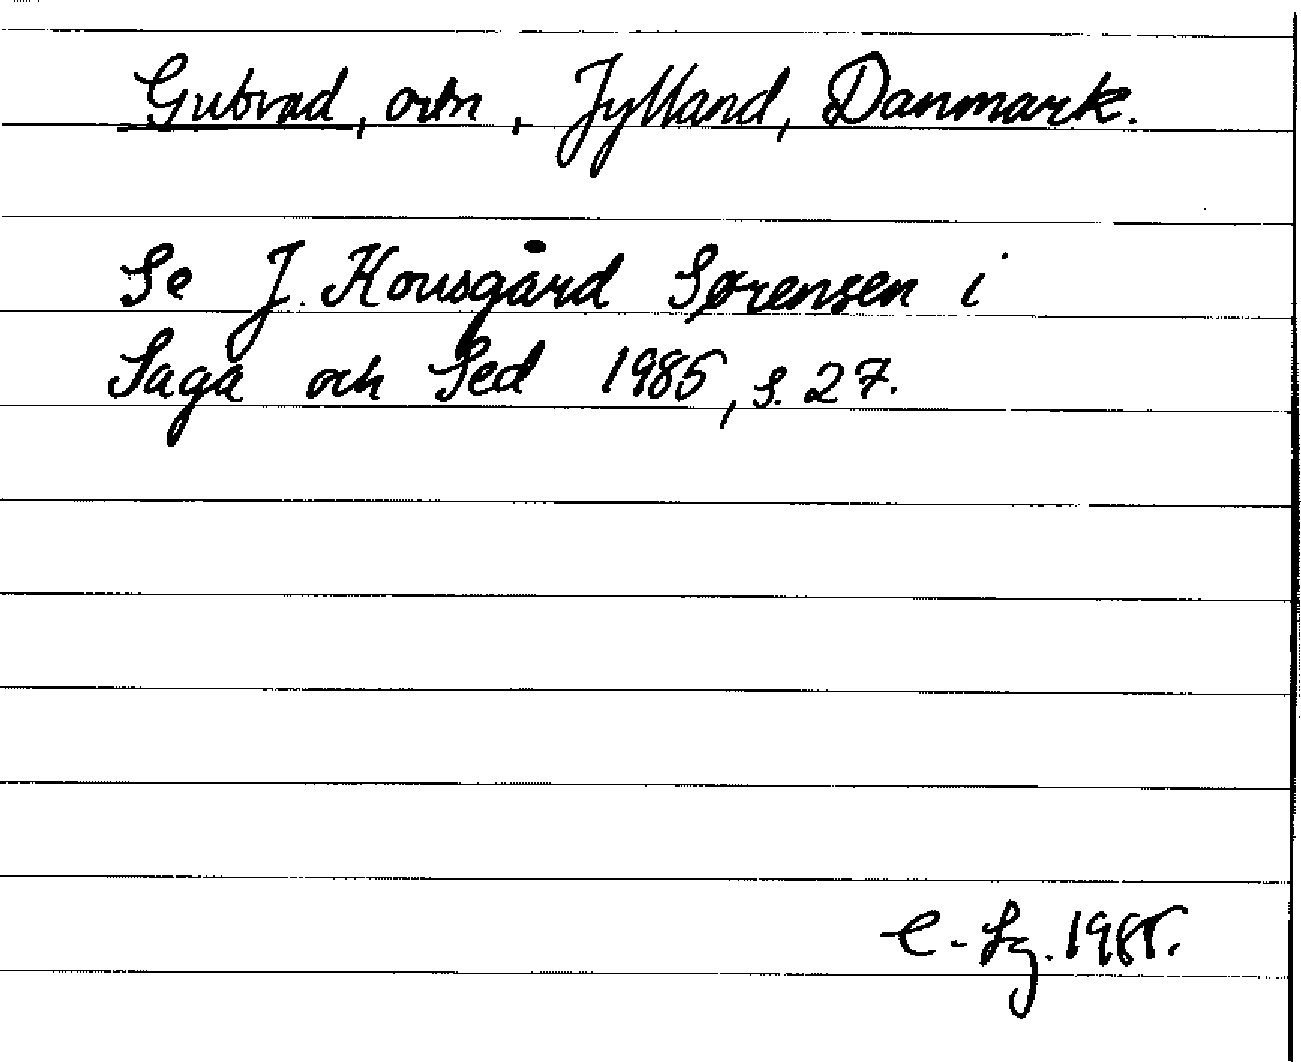 Gubvad, ortn, Jylland, Danmark.
Se J. Kousgård Sørensen i
Saga och Sed 1985, s. 27.
C-Hg. 1985.